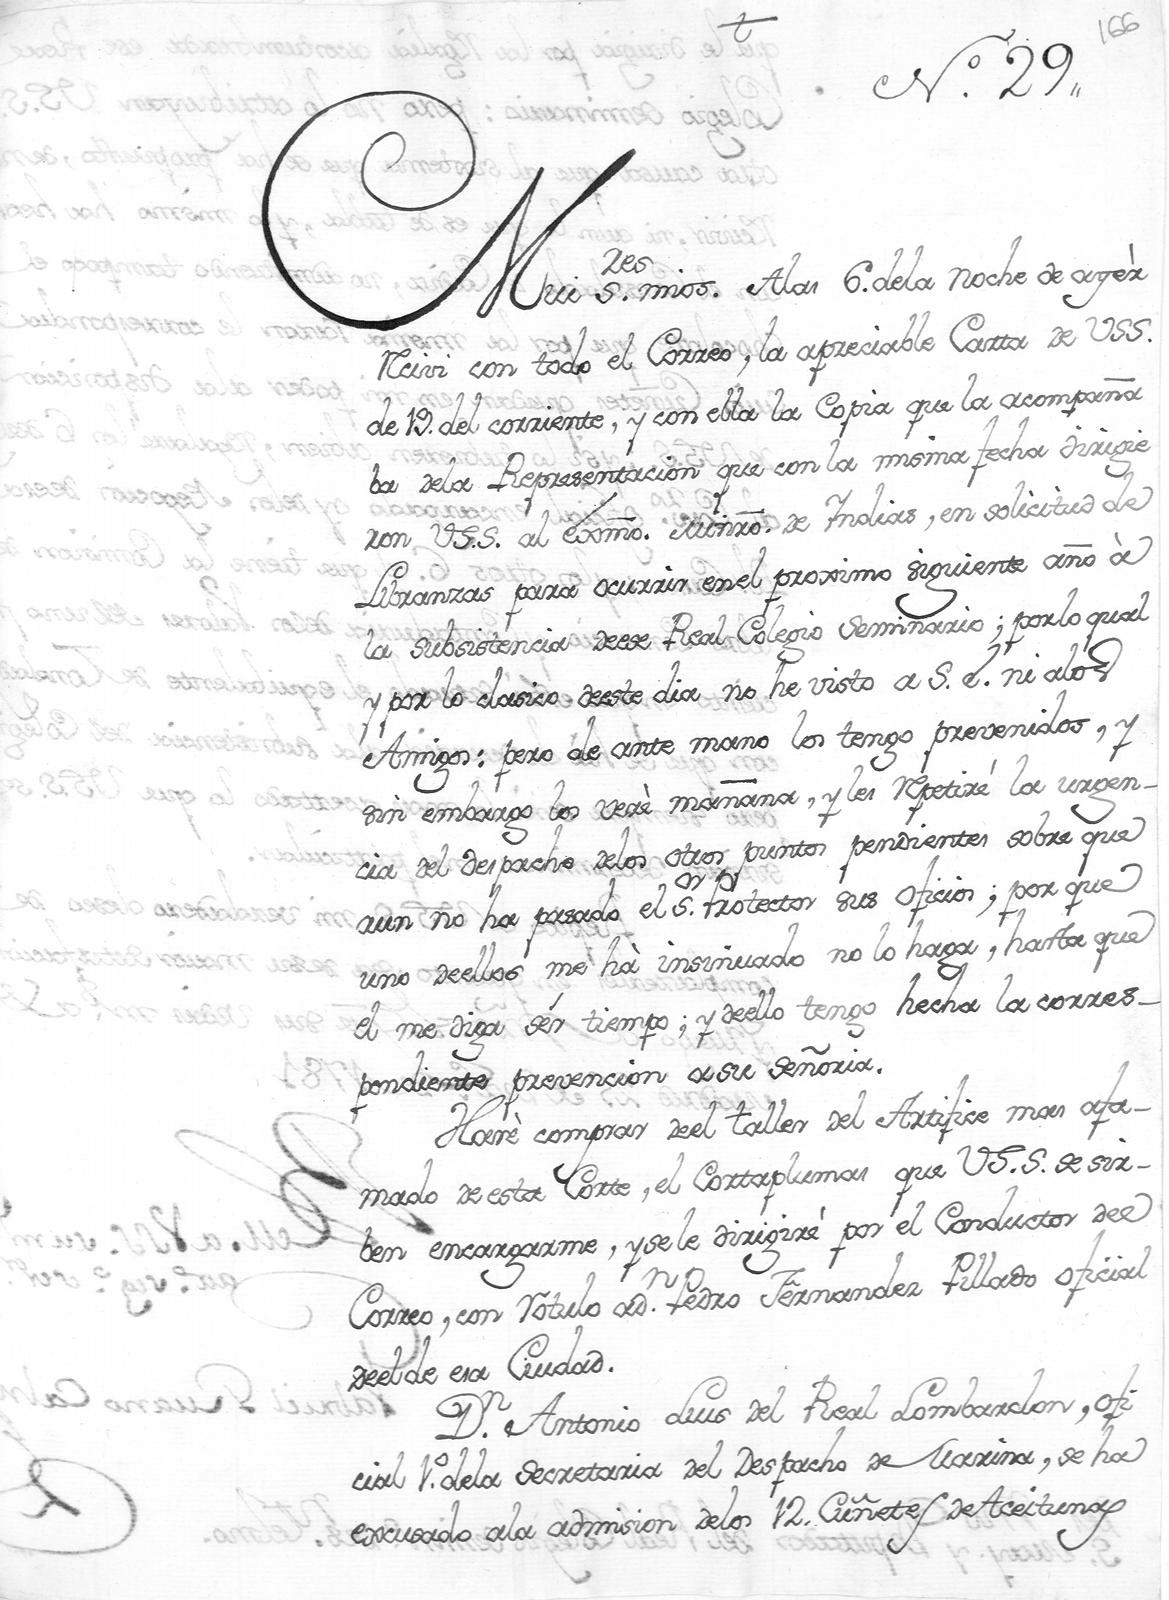 166
t
N.º 29,,
Mui S.res mios. A las 6. dela Noche de ayèr
Rciví con todo el Correo, la apreciable Carta de VSS.
de 19. del corriente, y con ella la Copia que la acompaña
ba dela Representacion que con la misma fecha dirigie
ron VS.S. al Exmo. Minro. de Indias, en solicitud de
Libranzas para ocurrir enel proximo siguiente año à
la subsistencia deese Real Colegio Seminario; porlo qual
y por lo clasico deeste dia no he visto a S. E. ni alos
Amigos: pero de ante mano los tengo prevenidos, y
sin embargo los verè mañana, y les Rpetiré la urgen-
cia del despacho delos otros puntos pendientes sobre que
aun no ha pasado el S.or Protector sus oficios; por que
uno deellos me hà insinuado no lo haga, hasta que
el me diga sér tiempo; y deello tengo hecha la corres-
pondiente prevencion asu señoria.
Harè comprar deel taller del Artifice mas afa-
mado de esta Corte, el Cortaplumas que VS.S. se sir-
ben encargarme, y se le dirigiré por el Conductor deel
Correo, con Rotulo aD.n Pedro Fernandez Pillado oficial
deel de esa Ciudad.
D.n Antonio Luis del Real Lombardon, ofi
cial 1.º dela Secretaria del Despacho de Marina, se ha
excusado ala admision delos 12. Cuñetes de Aceitunas